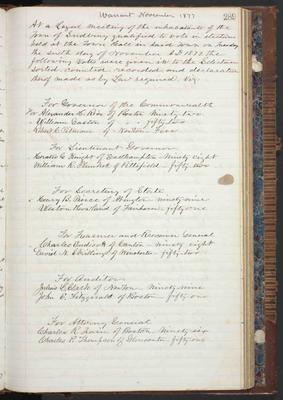 Warrant November 1877
289
At a Legal meeting of the inhabitants of the
Town of Sudbury qualified to vote in elections
held at the Town Hall in said Town on Tuesday
the sixth day of November A.D. 1877 the
following votes were given in to the Selectmen
sorted counted recorded and declaration
thereof made as by Law required Viz:
For Governor of the Commonwealth
For Alexander H. Rice of Boston Ninety two
William Gaston of " fifty two
Robert C. Pitman of Newton Five
For Lieutenant Governor
Horatio G. Knight of Easthampton Ninety eight
William R. Plunket of Pittsfield fifty two
For Secretary of State
Henry B. Peirce of Abington ninety nine
Weston Howland of Fairhaven fifty one
For Treasurer and Receiver General
Charles Endicott of Canton Ninety eight
David N. Skillings of Winchester fifty two
For Auditor
Julius L. Clark of Newton Ninety nine
John E. Fitzgerald of Boston fifty one
For Attorney General
Charles R. Train of Boston Ninety six
Charles P. Thompson of Gloucester fifty one